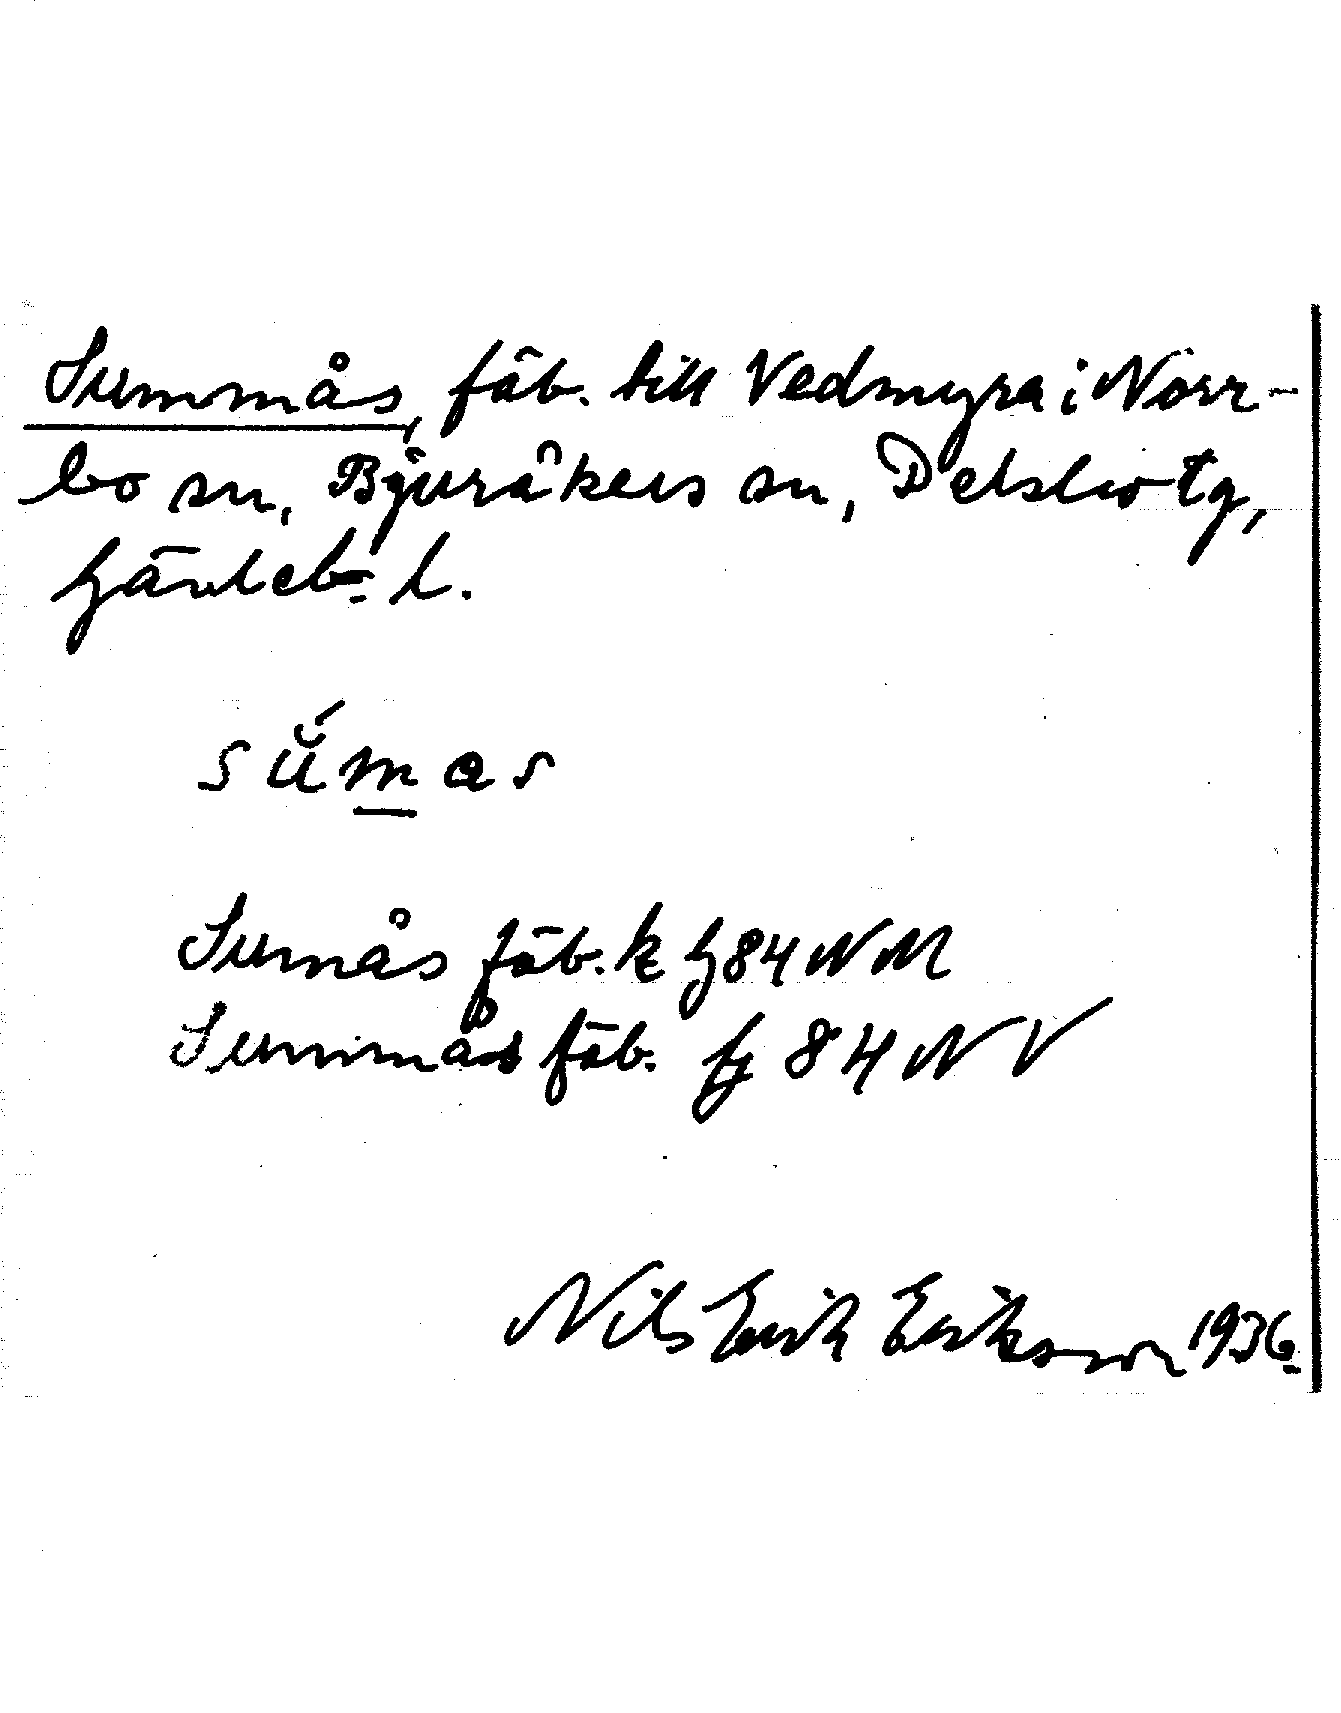 Summås, fäb. till Vedmyra i Norr-
bo sn, Bjuråkers sn, Delsbo tg,
Gävleb. l.
sŭ́mas
Sumås fäb. k G84NM
Summås fäb. 84NV
Nils Erik Erikson 1936